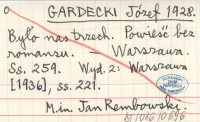 GARDECKI Józef 1928.
Było nas trzech. Powieść bez
romansu. — Warszawa.
Ss. 259. Wyd. 2: Warszawa
[1936], ss. 221.
M.in. Jan Rembowski.